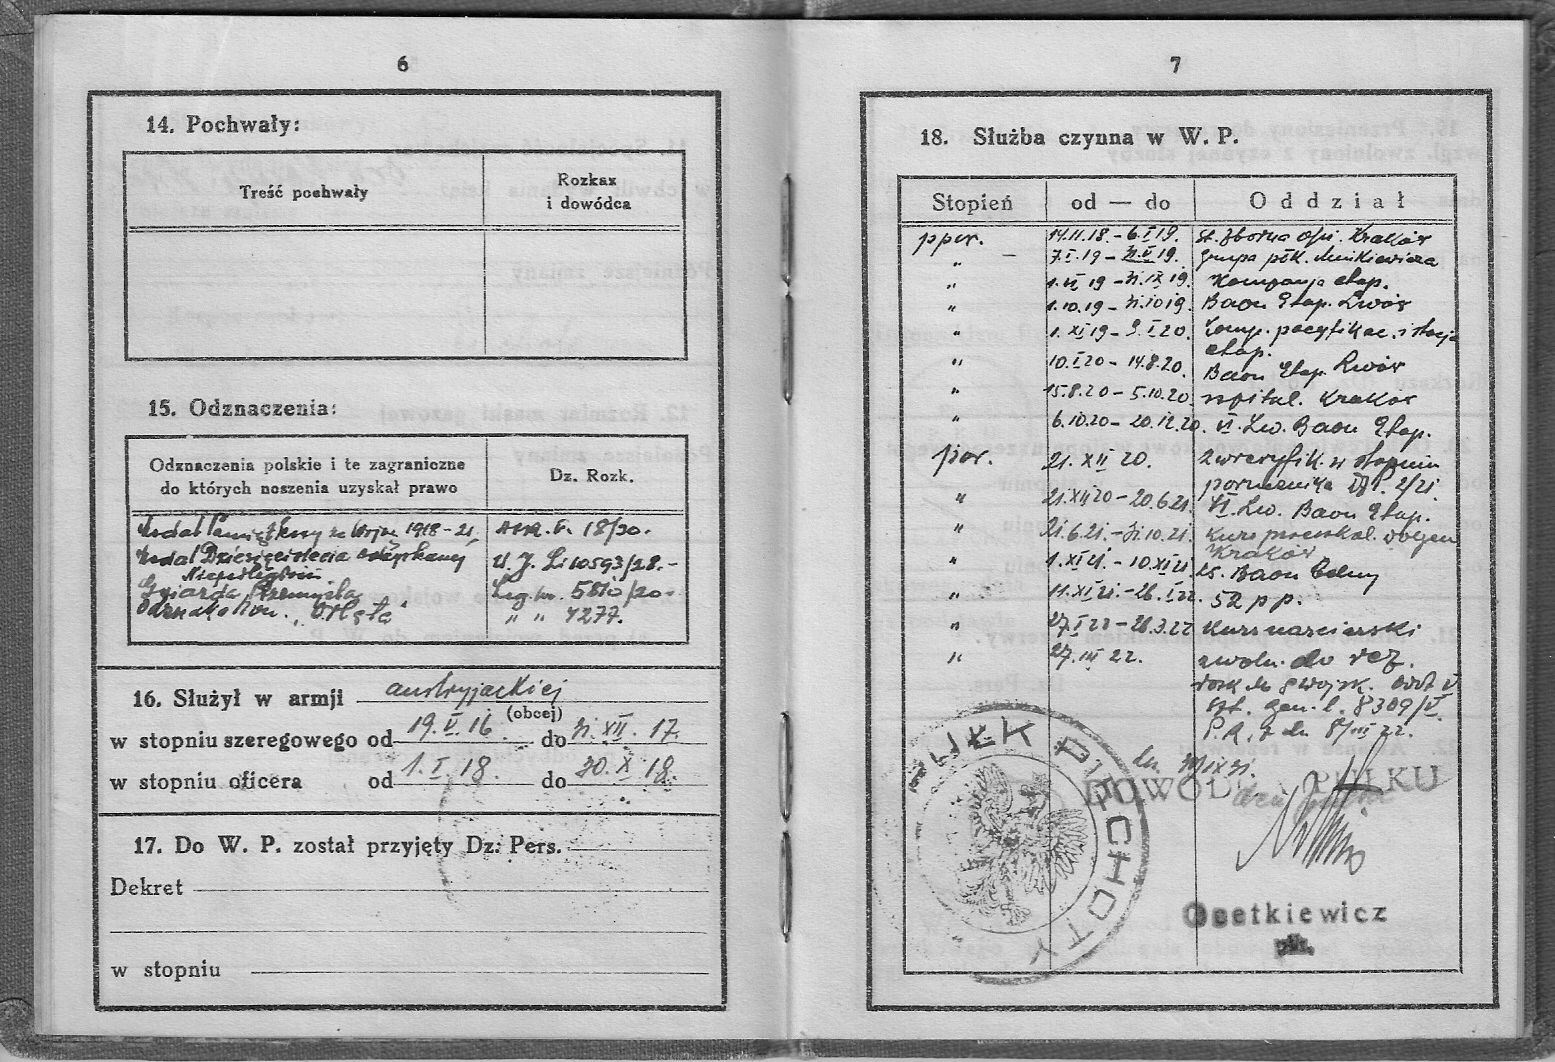 6
14. Pochwały:
Treść pochwały
Rozkaz
i dowódca
15. Odznaczenia:
Odznaczenia polskie i te zagraniczne
do których noszenia uzyskał prawo
Dz. Rozk.
Medal Pamiątkowy za Wojnę 1918-21.
18/30.
Medal Dziesięciolecia odzyskanej
10593/28.-
Niepodległości
Gwiazda Przemyśla
Leg. nr. 5810/20-
Odznaka Hon. "Orlęta"
" " 4277.
16. Służył w armji austryjackiej
(obcej)
w stopniu szeregowego od 19.V.16. do 31.XII.17.
w stopniu oficera od 1.I.18. do 30.X.18.
17. Do W. P. został przyjęty Dz. Pers.
Dekret
w stopniu
7
18. Służba czynna w W. P.
Stopień od — do Oddział
ppor. 14.11.18.-6.I.19. St. zborna ofic. Kraków
" 7.I.19-31.V.19. Grupa płk.
" 1.VI.19-31.IX.19. Kompanja etap.
" 1.10.19-31.10.19. Baon Etap. Lwów
" 1.XI.19-9.I.20. Komp. pacyfikac. i stacja
etap.
" 10.I.20-14.8.20. Baon Etap. Lwów
" 15.8.20-5.10.20 szpital. Kraków
" 6.10.20-20.12.20. VI. Lw. Baon Etap.
por. 21.XII.20. Zweryfik. w stopniu
porucznika
" 21.XII.20-20.6.21. VI. Lw. Baon Etap.
" 21.6.21.-31.10.21. Kurs
Kraków
" 1.XI.21.-10.XI.21 25. Baon Celny
" 11.XI.21.-26.I.22. 52 p p.
" 27.I.22-26.3.22 Kurs narciarski
" 27.III 22. zwoln. do rez.
szt. gen. l. 8309/V.
PUŁK PIECHOTY
DOWÓDCA PUŁKU
Osetkiewicz
płk.